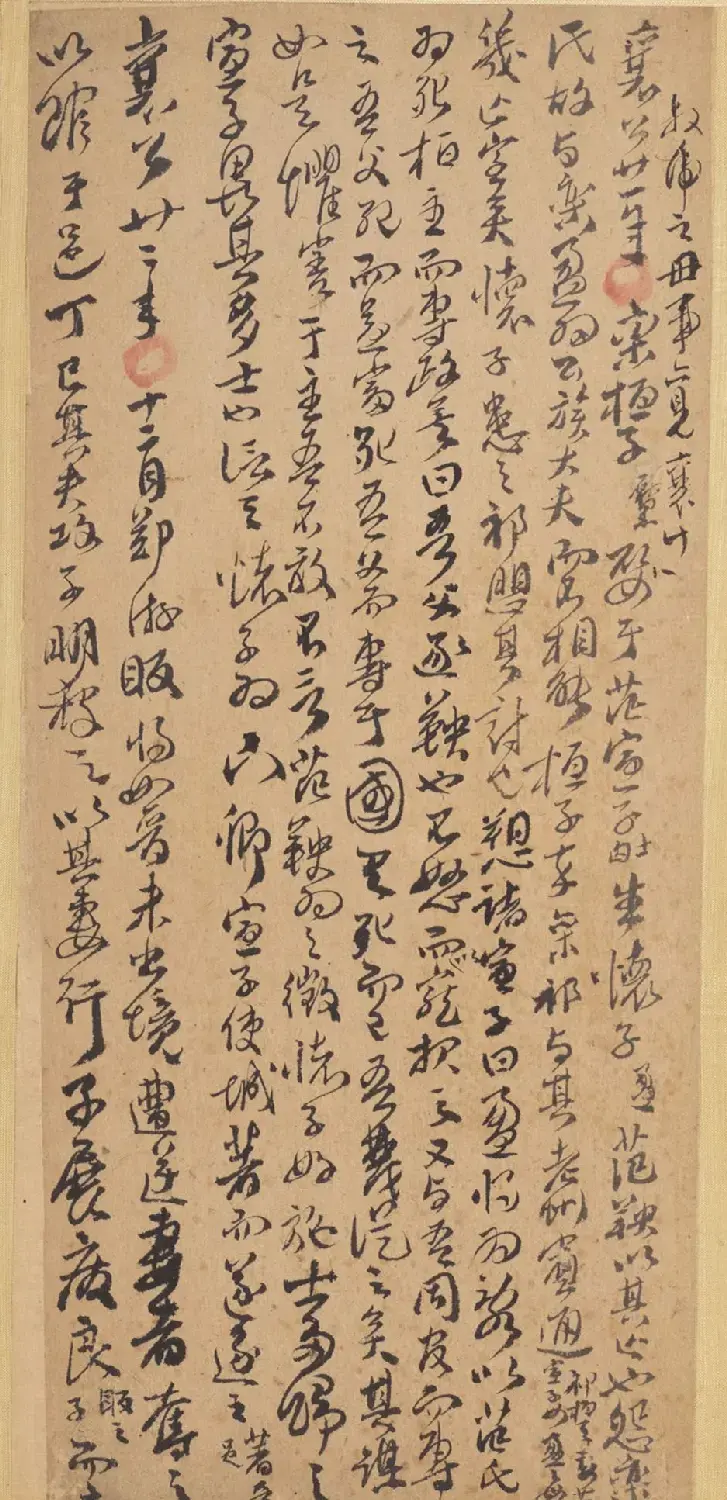 叔虎之母事亦見襄廿
襄公廿一年 欒桓子黶娶于范宣子女生懷子盈范鞅以其亡也怨欒
氏故与欒盈为公族大夫而不相能桓子卒欒祁与其老州賓通
幾亡室矣懷子患之祁懼其討也愬諸宣子曰盈將为亂以范氏
为死桓主而專政矣曰吾父逐鞅也不怒而以寵报之又与吾同官而專
之吾父死而益富死吾父而專于國有死而已吾蔑從之矣其謀
如是懼害于主吾不敢不言范鞅为之徵懷子好施士多歸之
宣子畏其多士也信之懷子为下卿宣子使城著而遂逐之著
襄公廿二年 十二月鄭游眅將如晉未出境遭逆妻者奪之
以館于邑丁巳其夫攻子明殺之以其妻行子展廢良眅之子而